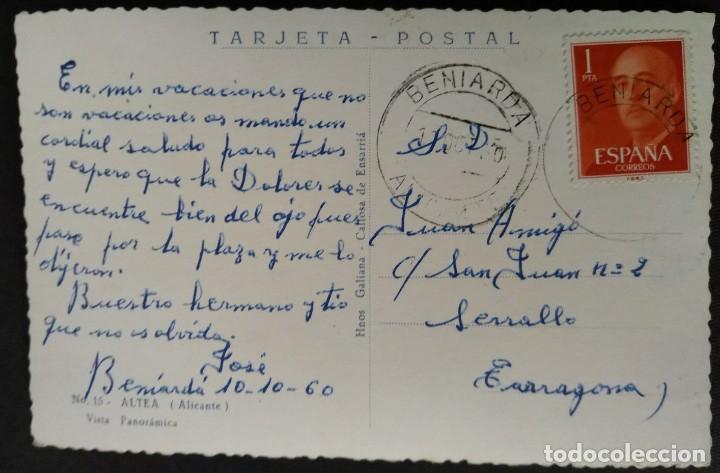 TARJETA - POSTAL
En mis vacaciones que no
son vacaciones os mando un
cordial saludo para todos
y espero que la Dolores se
encuentre bien del ojo pues
pase por la plaza y me lo
dijeron.
Buestro hermano y tio
que no os olvida.
José
Beniardá 10-10-60
No. 15 - ALTEA (Alicante)
Vista Panorámica
Hnos Galiana - Callosa de Ensarriá
BENIARDA
1
PTA
BENIARDA
ESPAÑA
CORREOS
Sr. D.
Juan Amigó
c/ San Juan nº 2
Serrallo
Tarragona
todocoleccion.net